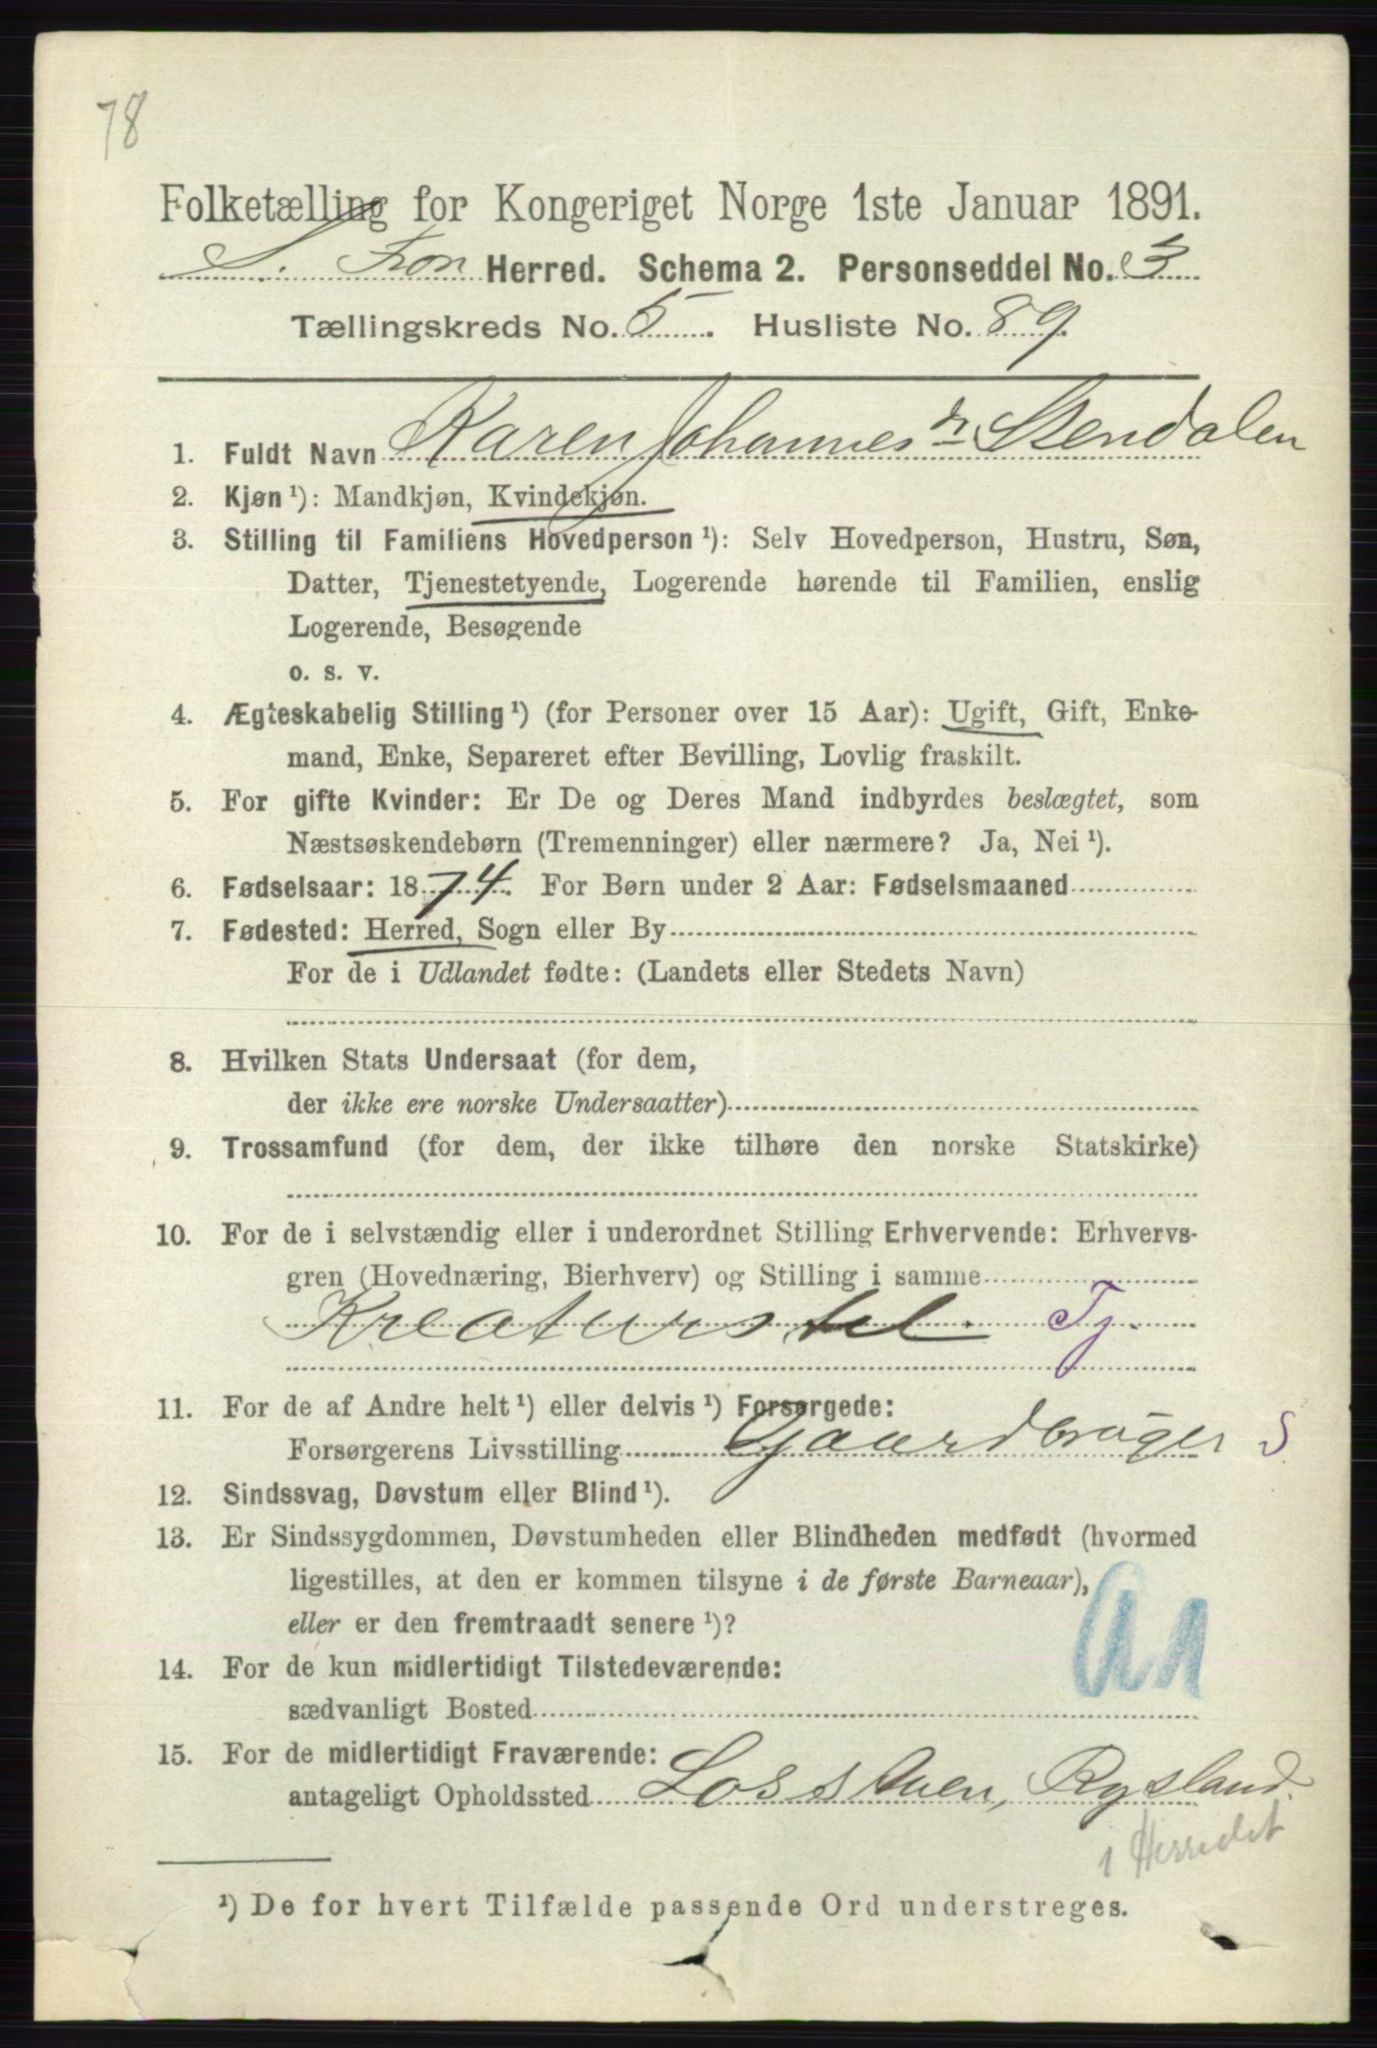 78
Folketælling for Kongeriget Norge 1ste Januar 1891.
S. Fron Herred. Schema 2. Personseddel No. 3
Tællingskreds No. 5. Husliste No. 89.
1. Fuldt Navn Karen Johannesdr Stendalen
2. Kjøn ¹): Mandkjøn, Kvindekjøn.
3. Stilling til Familiens Hovedperson ¹): Selv Hovedperson, Hustru, Søn,
Datter, Tjenestetyende, Logerende hørende til Familien, enslig
Logerende, Besøgende
o. s. v.
4. Ægteskabelig Stilling ¹) (for Personer over 15 Aar): Ugift, Gift, Enke-
mand, Enke, Separeret efter Bevilling, Lovlig fraskilt.
5. For gifte Kvinder: Er De og Deres Mand indbyrdes beslægtet, som
Næstsøskendebørn (Tremenninger) eller nærmere? Ja, Nei ¹).
6. Fødselsaar: 1874. For Børn under 2 Aar: Fødselsmaaned
7. Fødested: Herred, Sogn eller By
For de i Udlandet fødte: (Landets eller Stedets Navn)
8. Hvilken Stats Undersaat (for dem,
der ikke ere norske Undersaatter)
9. Trossamfund (for dem, der ikke tilhøre den norske Statskirke)
10. For de i selvstændig eller i underordnet Stilling Erhvervende: Erhvervs-
gren (Hovednæring, Bierhverv) og Stilling i samme
Kreaturstel. Tj.
11. For de af Andre helt ¹) eller delvis ¹) Forsørgede:
Forsørgerens Livsstilling Gaardbruger S
12. Sindssvag, Døvstum eller Blind ¹).
13. Er Sindssygdommen, Døvstumheden eller Blindheden medfødt (hvormed
ligestilles, at den er kommen tilsyne i de første Barneaar),
eller er den fremtraadt senere ¹)?
14. For de kun midlertidigt Tilstedeværende:
sædvanligt Bosted
15. For de midlertidigt Fraværende:
antageligt Opholdssted Rysland.
i Herredet
¹) De for hvert Tilfælde passende Ord understreges.